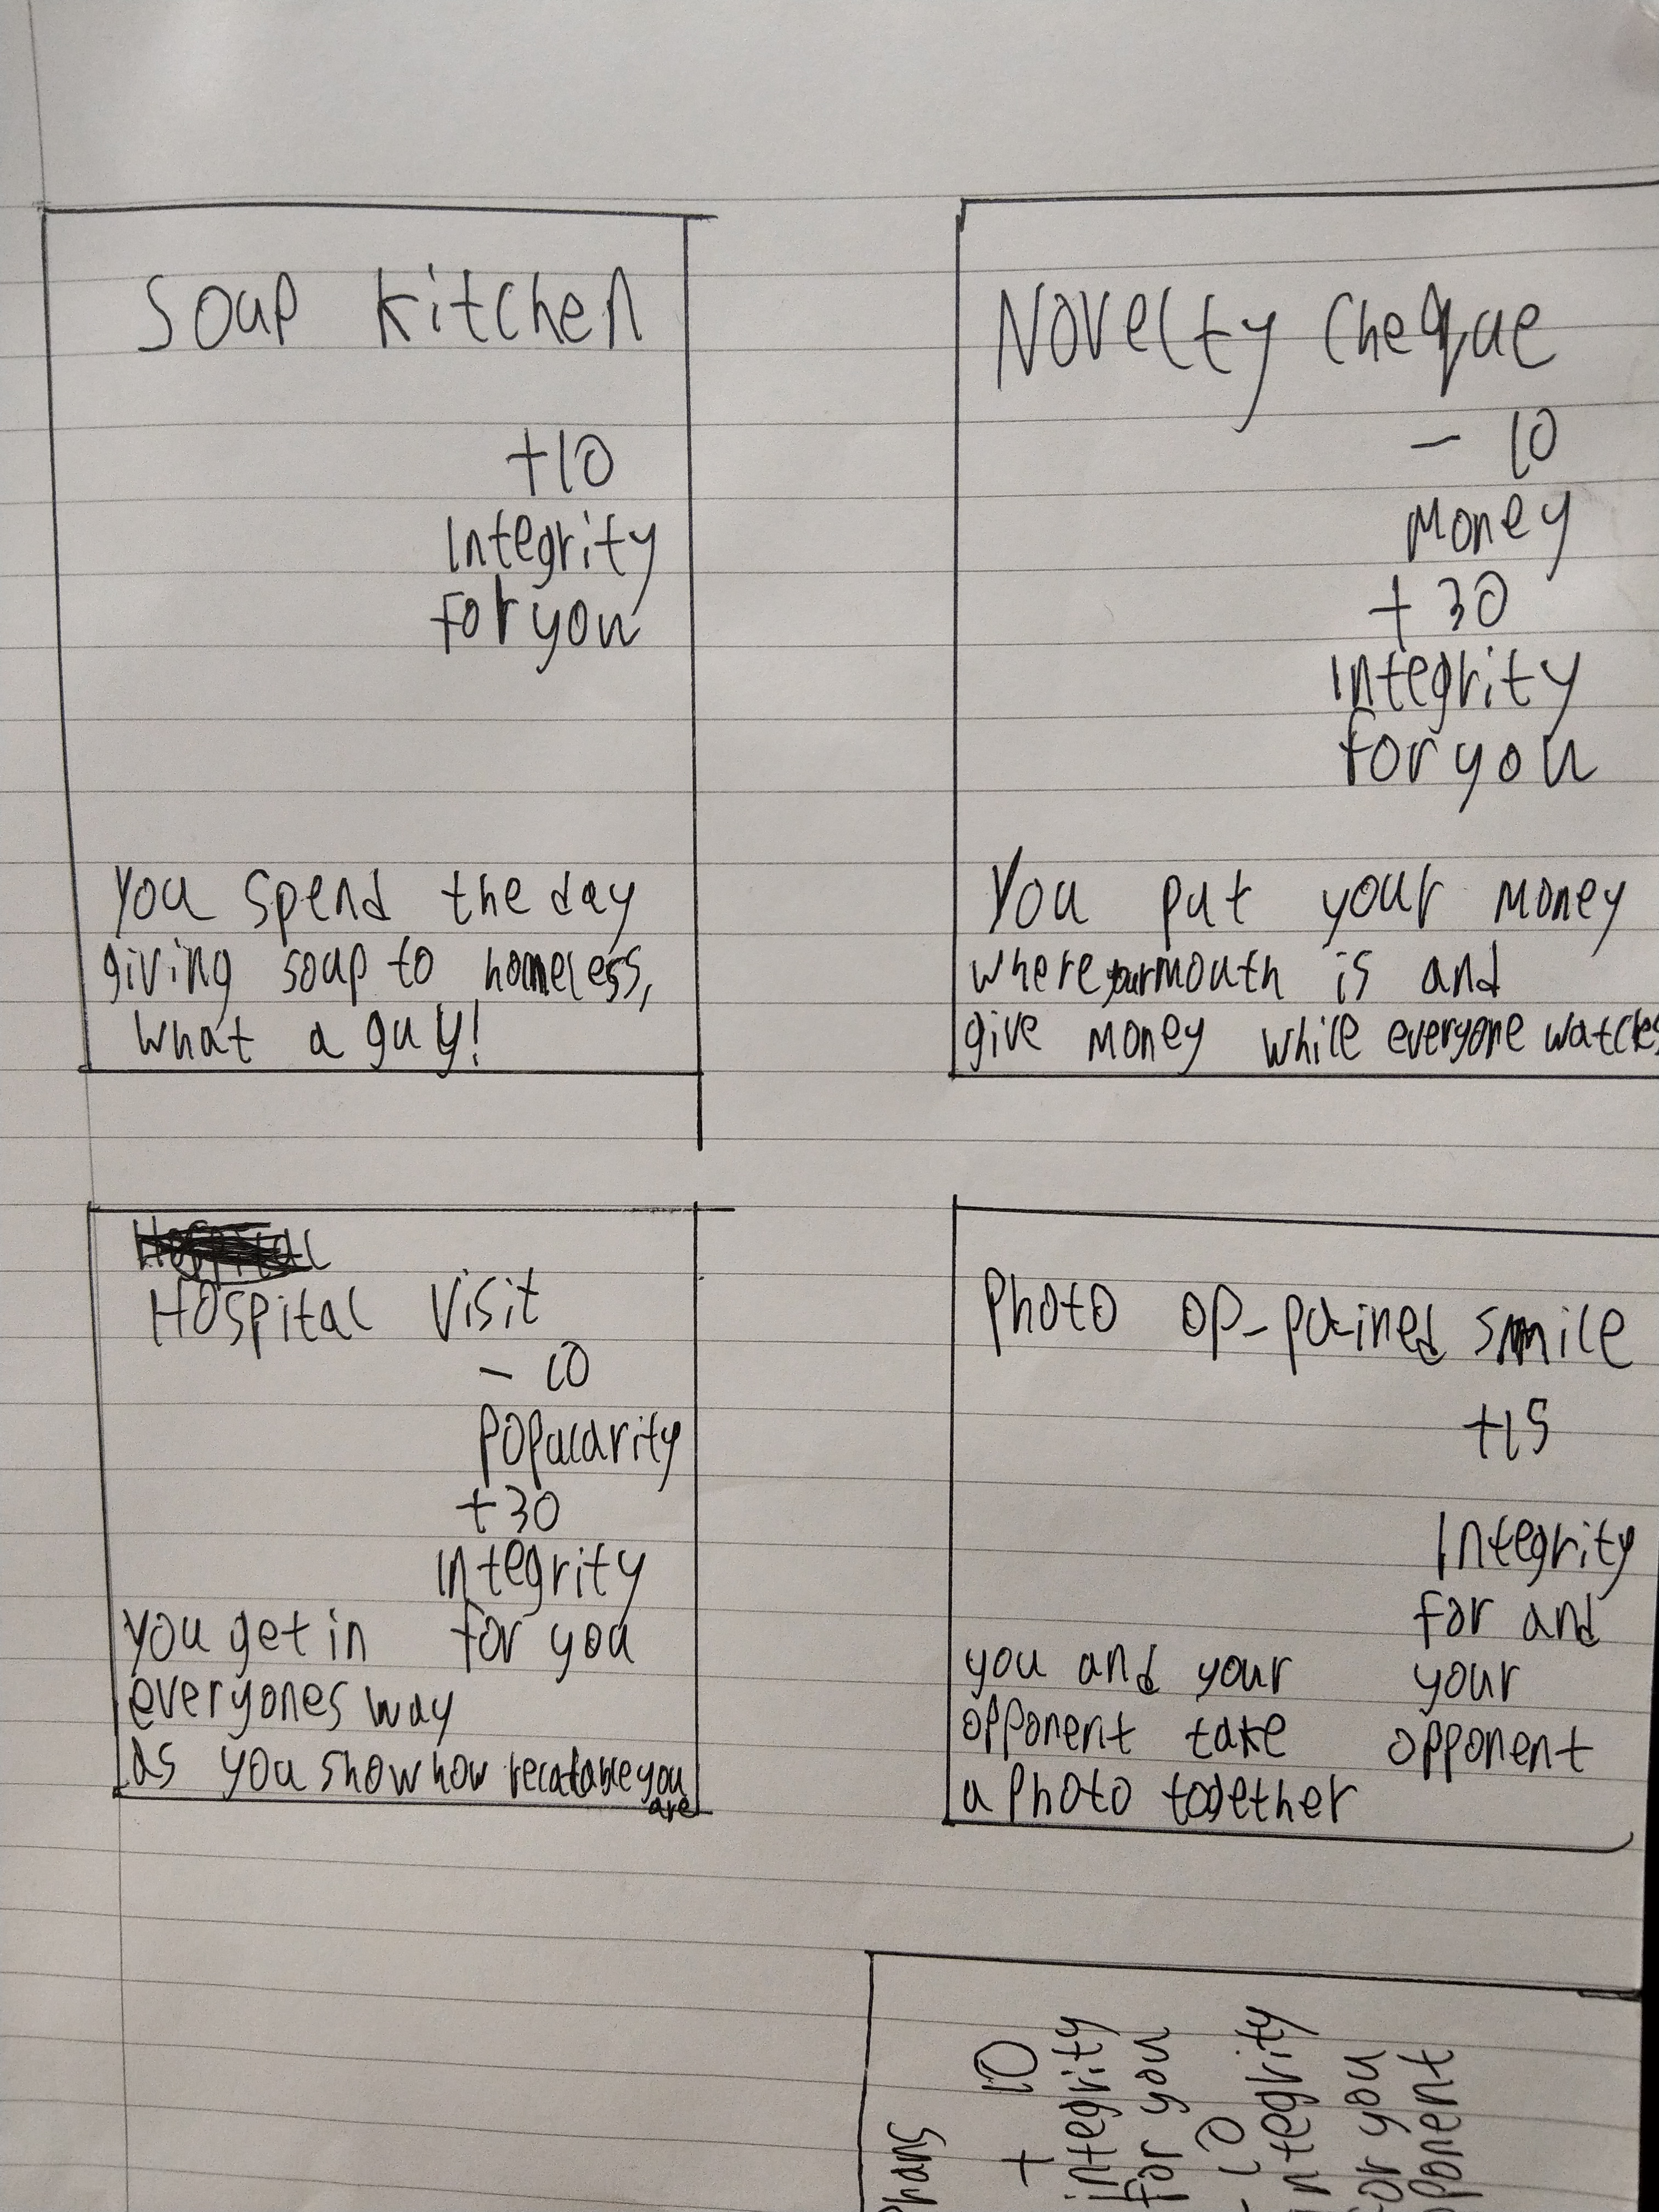 Soup Kitchen
+10
Integrity
for you
You spend the day
giving soup to homeless,
what a guy!
Novelty Cheque
- 10
Money
+ 30
Integrity
for you
You put your money
where your mouth is and
give money while everyone watches
Hospital
Hospital Visit
- 10
Popularity
+30
Integrity
for you
you get in
everyones way
as you show how recatable you
are
Photo op-pained smile
+15
Integrity
for and
your
opponent
you and your
opponent take
a photo together
+ 10
integrity
for you
- 10
integrity
for you